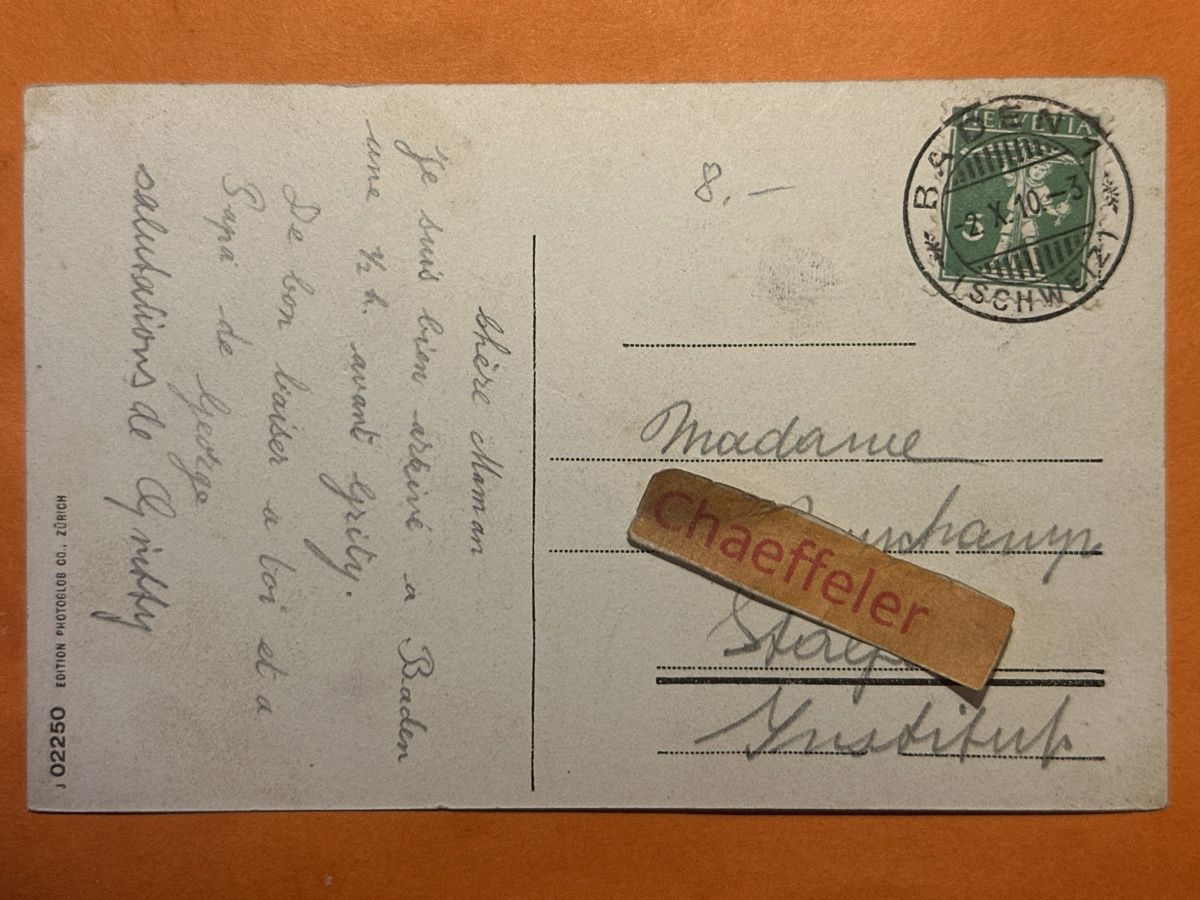 Chère Maman
Je suis bien arkivé a Baden
une ½ h. avant Gritty.
De bon baiser a toi et a
Papa de George
salutations de Gritty
J 02250 EDITION PHOTOGLOB CO., ZÜRICH
8.—
HELVETIA
5
BADEN 1
-2.X.10.-3
(SCHWEIZ)
Madame
Chaeffeler
Institut